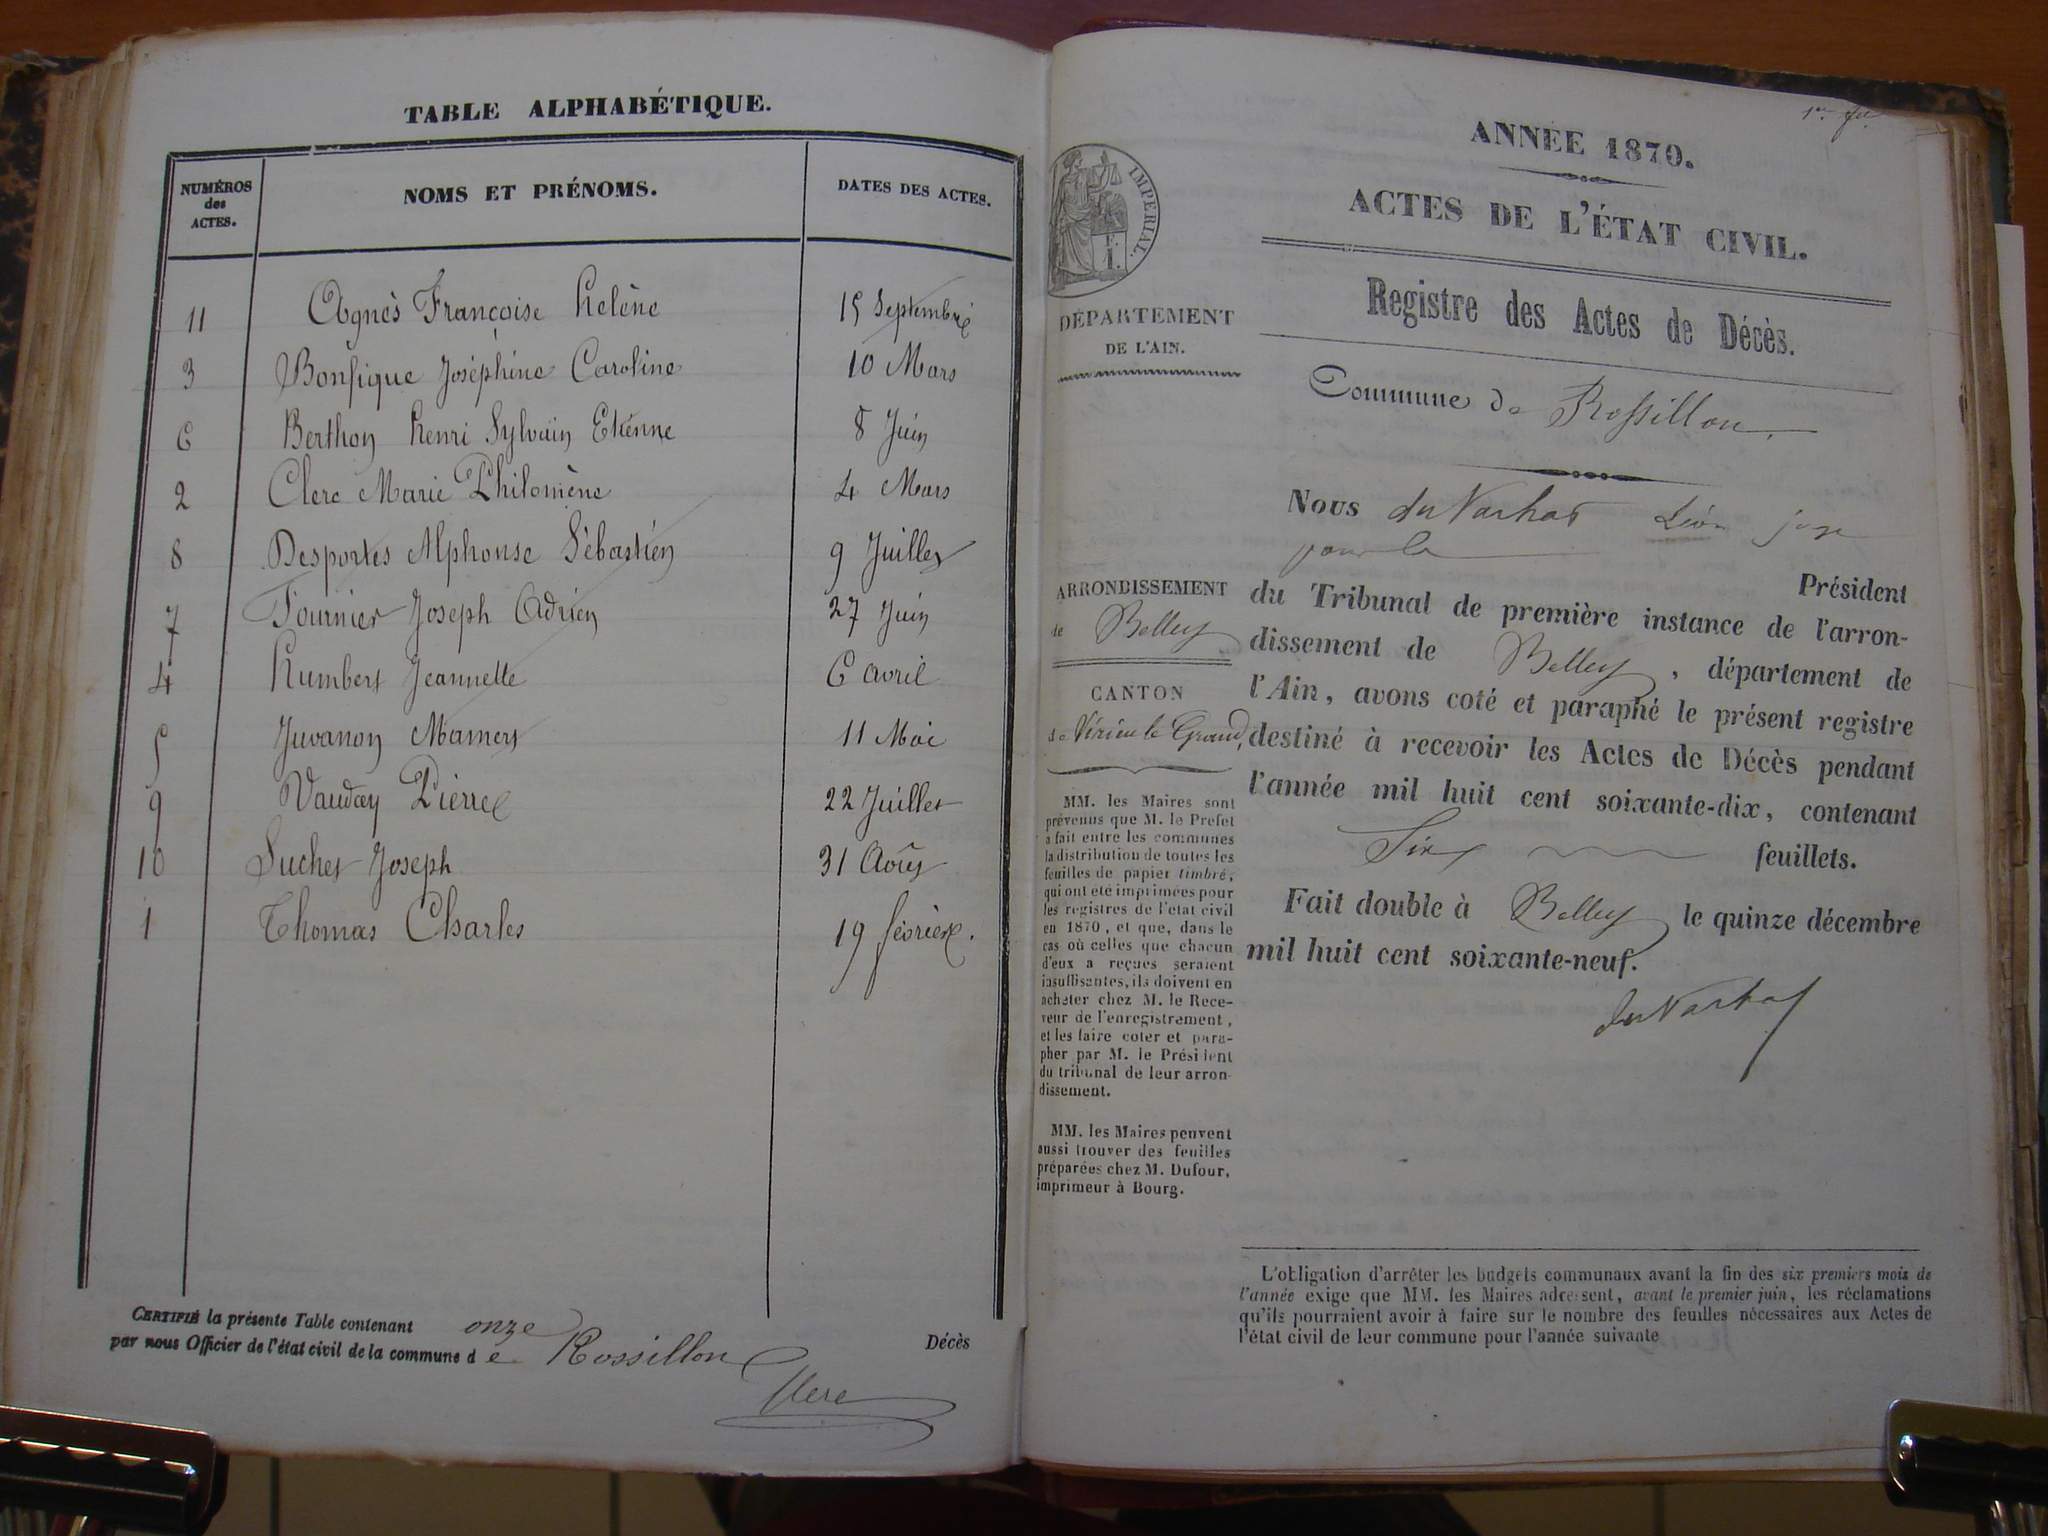 TABLE ALPHABÉTIQUE.
NUMÉROS des ACTES. NOMS ET PRÉNOMS. DATES DES ACTES.
11 Agnès Françoise helène 15 Septembre
3 Bonfique Joséphine Caroline 10 Mars
6 Berthon henri Sylvain Etienne 8 Juin
2 Clerc Marie Philomène 4 Mars
8 Desportes Alphonse Sébastien 9 Juillet
7 Fournier Joseph Adrien 27 Juin
4 humbert Jeannette 6 avril
5 Juvanon Mamert 11 Mai
9 Vauday Pierre 22 Juillet
10 Suchet Joseph 31 Août
1 Thomas Charles 19 février.
CERTIFIÉ la présente Table contenant onze Décès
par nous Officier de l'état civil de la commune de Rossillon
Clerc
1er fet
ANNÉE 1870.
ACTES DE L'ÉTAT CIVIL.
IMPERIAL.
F.
1.
Registre des Actes de Décès.
DÉPARTEMENT
DE L'AIN.
Commune de Rossillon.
Nous du Varhas Léon juge
pour le Président
ARRONDISSEMENT
de Belley
CANTON
de Virieu le Grand,
du Tribunal de première instance de l'arron-
dissement de Belley, département de
l'Ain, avons coté et paraphé le présent registre
destiné à recevoir les Actes de Décès pendant
l'année mil huit cent soixante-dix, contenant
Six feuillets.
Fait double à Belley le quinze décembre
mil huit cent soixante-neuf.
du Varhas
MM. les Maires sont
prévenus que M. le Préfet
a fait entre les communes
la distribution de toutes les
feuilles de papier timbré,
qui ont été imprimées pour
les registres de l'état civil
en 1870, et que, dans le
cas où celles que chacun
d'eux a reçues seraient
insuffisantes, ils doivent en
acheter chez M. le Rece-
veur de l'enregistrement,
et les faire coter et para-
pher par M. le Président
du tribunal de leur arron-
dissement.
MM. les Maires peuvent
aussi trouver des feuilles
préparées chez M. Dufour,
imprimeur à Bourg.
L'obligation d'arrêter les budgets communaux avant la fin des six premiers mois de
l'année exige que MM. les Maires adressent, avant le premier juin, les réclamations
qu'ils pourraient avoir à faire sur le nombre des feuilles nécessaires aux Actes de
l'état civil de leur commune pour l'année suivante